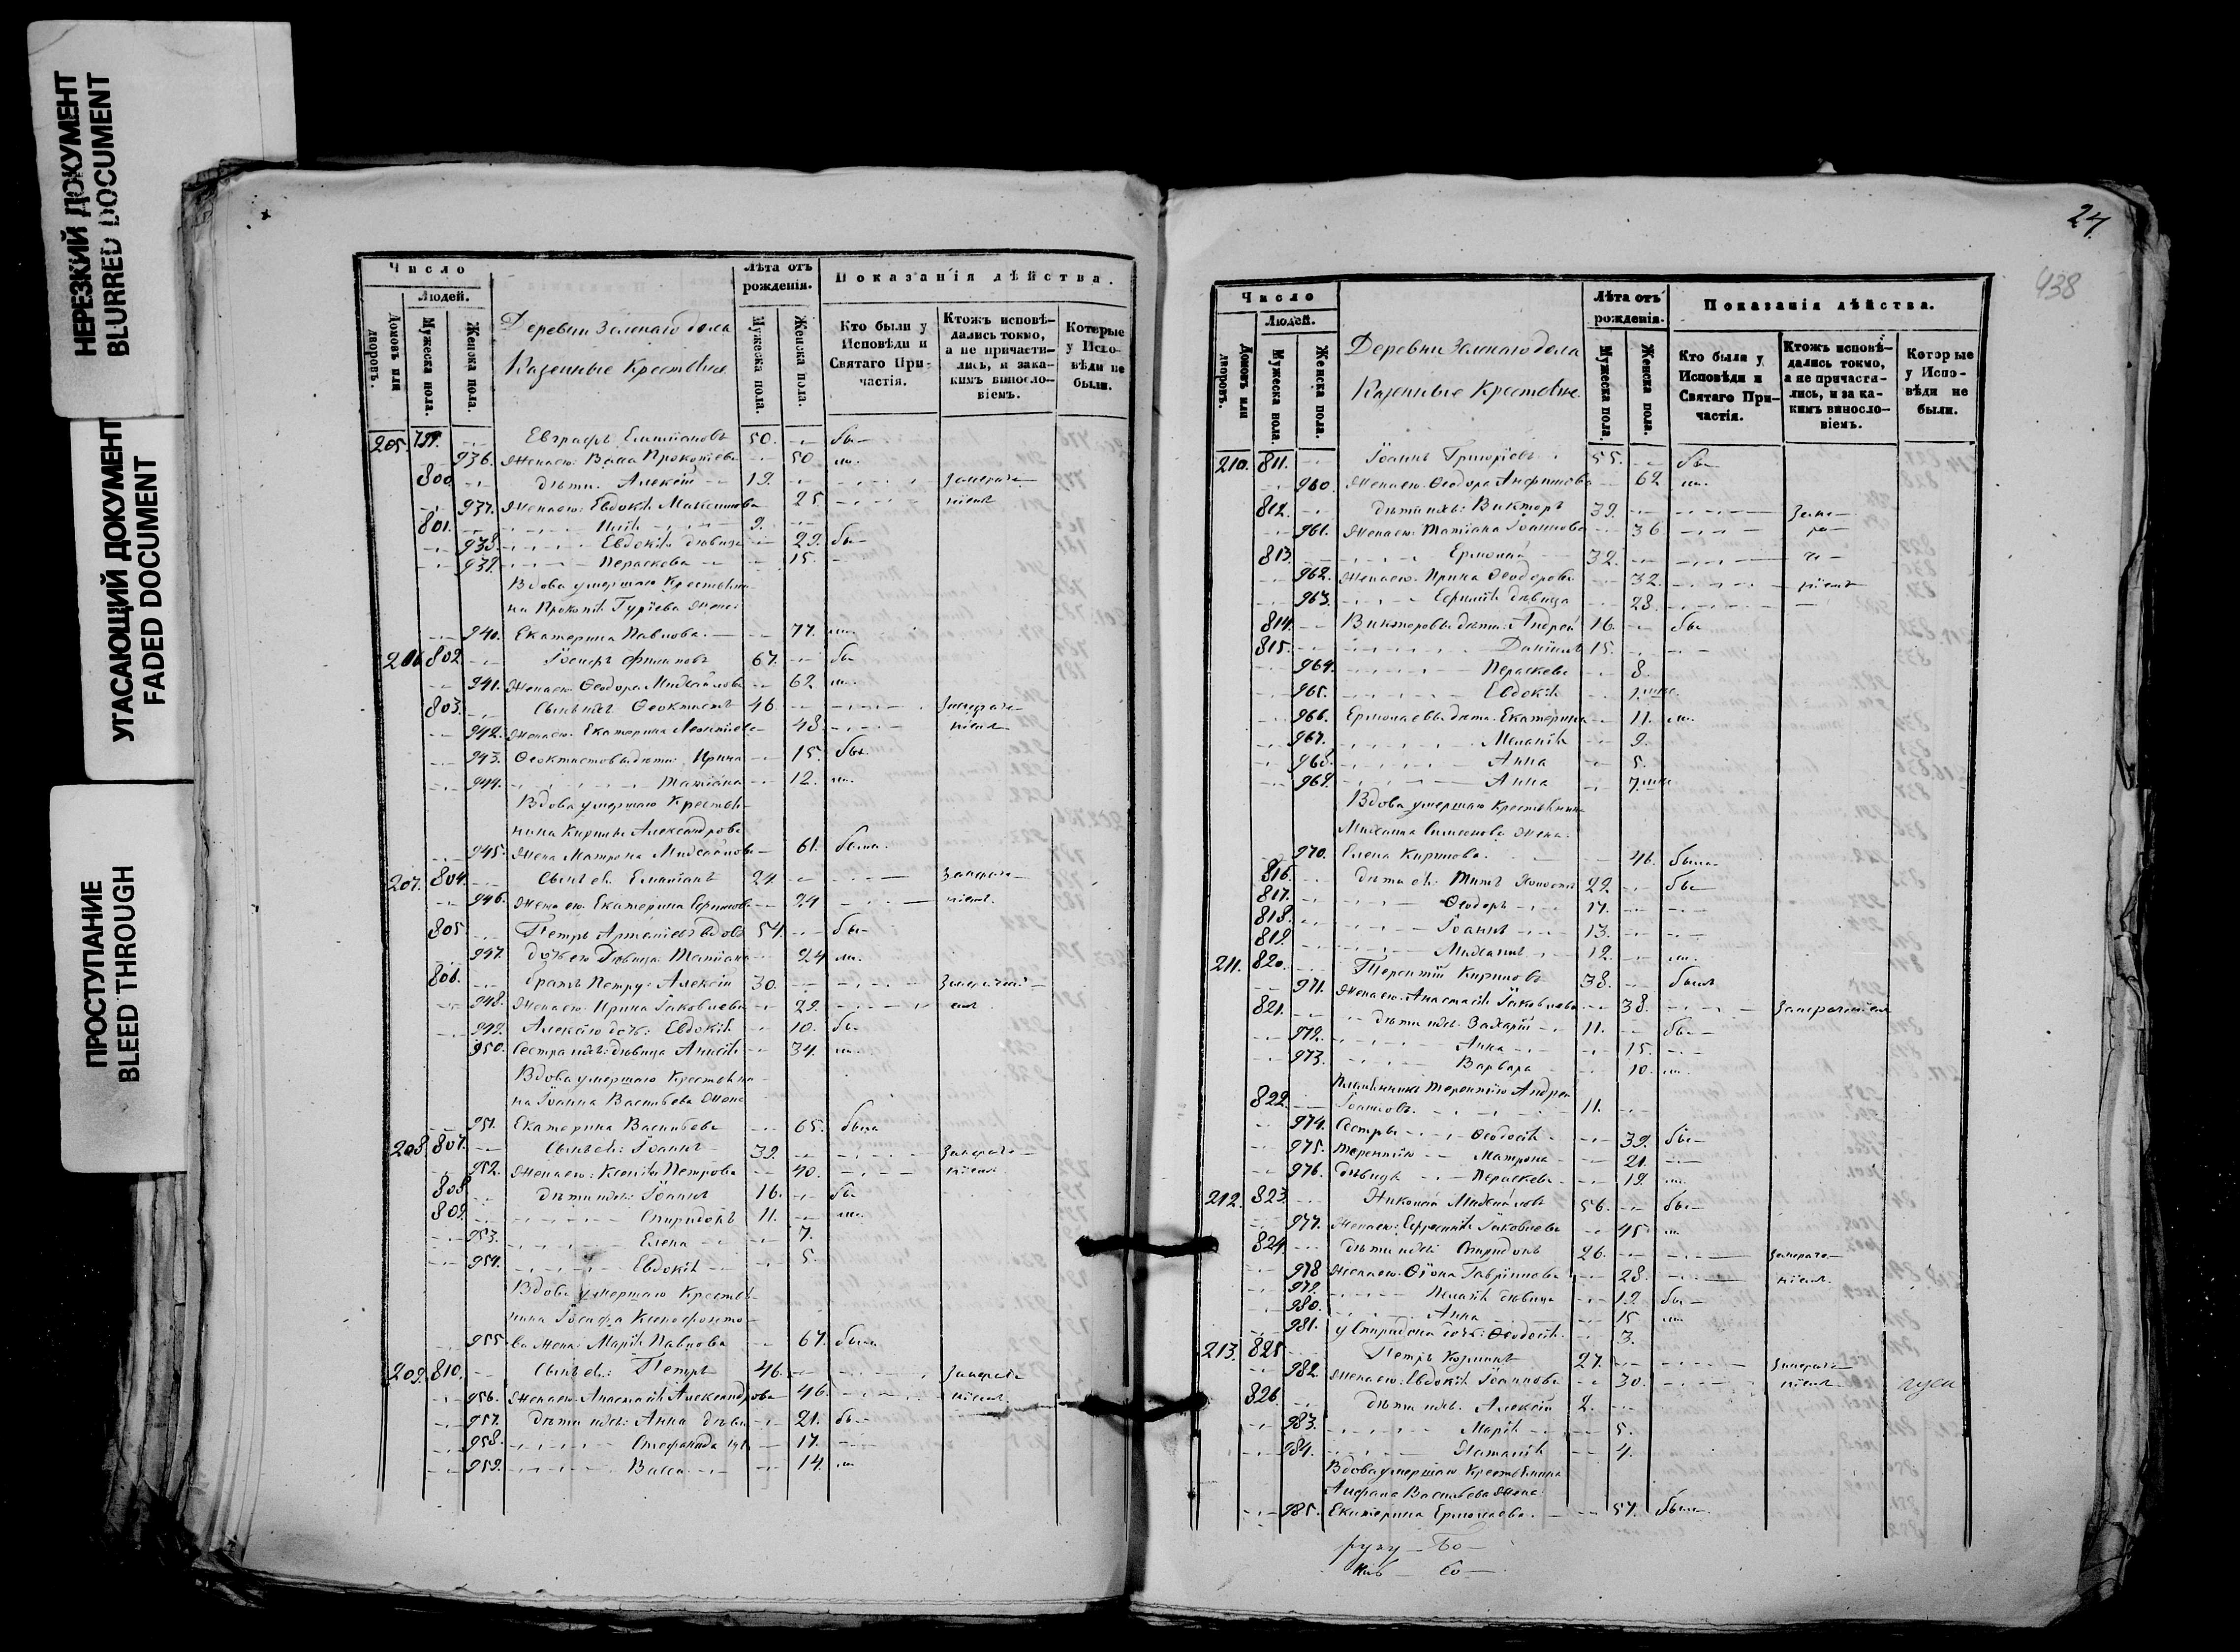 НЕРЕЗКИЙ ДОКУМЕНТ
BLURRED DOCUMENT
УГАСАЮЩИЙ ДОКУМЕНТ
FADED DOCUMENT
ПРОСТУПАНИЕ
BLEED THROUGH
Число
Людей.
Домовъ или дворовъ.
Мужеска пола.
Женска пола.
Деревни Зеленаго дола
Казенные Крестьяне
Лѣта отъ рожденія.
Мужеска пола.
Женска пола.
Показанія дѣйства.
Кто были у Исповѣди и Святаго Причастія.
Ктожъ исповѣдались токмо, а не причастились, и закакимъ винословіемъ.
Которые у Исповѣди не были.
205. 799. Евграфъ 50. бы
936. Жена ею: Васса Прокопіева 50. ли
800. дѣти: Алексѣй 19.
937. Жена ею: Евдокія Максимова 25
801. 9.
938. Евдокія дѣвица 22. бы
939. Параскева 15.
Вдова умершаго Крестьяни
на Прокопія Гурьева жена
940. Екатерина Павлова. 77.
206. 802. Іосифъ 67. бы
941. Жена ею Ѳеодора Михайлова 62 ли
803. Сынъ ихъ Ѳеоктистъ 46.
942. Жена ею: Екатерина Леонтіева 48.
943. Ѳеоктистовы дѣти: Ирина 15. бы
944. Татіана 12. ли.
Вдова умершаго Крестья
нина Кирилы Александрова
945. Жена Матрона Михайлова 61. была.
207. 804. Сынъ ея: 24.
946. Жена ею: Екатерина 24
805. Петръ Артеміевъ вдовъ 54. бы
947. дочь ею Дѣвица Татіана 24 ли.
806. братъ Петру: Алексѣй 30.
948. Жена ею: Ирина Іаковлева 29.
949. Алексѣю дочь: Евдокія 10. бы
950. Сестра ихъ: дѣвица 34. ли.
Вдова умершаго Крестьяни
на Іоанна Васильева жена
951. Екатерина Васильева 65. была
208. 807. Сынъ ея: Іоаннъ 39.
952. Жена ею: Ксенія Петрова 40.
808. дѣти ихъ: Іоаннъ 16. бы
809. Спиридонъ 11. ли.
953. Елена 7.
954. Евдокія 5.
Вдова умершаго Крестья
нина Іосифа Ксенофонто
955. ва жена: Марія Павлова 67. была
209. 810. Сынъ ея: Петръ 46.
956. Жена ею Анастасія Александрова 46.
957. дѣти ихъ: Анна дѣви 21. бы
958. Стефанида 17.
959. Васса 14. ли
24.
438
Число
Людей.
Домовъ или дворовъ.
Мужеска пола.
Женска пола.
Деревни Зеленаго дола
Казенные Крестьяне.
Лѣта отъ рожденія.
Мужеска пола.
Женска пола.
Показанія дѣйства.
Кто были у Исповѣди и Святаго Причастія.
Ктожъ исповѣдались токмо, а не причастились, и за какимъ винословіемъ.
Которые у Исповѣди не были.
210. 811. Іоаннъ Григорьевъ 55. бы
960. Жена ею: Ѳеодора 62 ли.
812. дѣти ихъ: Викторъ 39.
961. Жена ею: Татіана Іоаннова 36.
813. Ермолай 32.
962. Жена ею: Ирина Ѳеодорова 32.
963. дѣвица 28.
814. Викторовы дѣти: Андрей 16. бы
815. Даніилъ 15.
964. Параскева 8.
965. Евдокія
966. Ермолаевы дѣти: Екатерина 11. ли.
967. Меланія 9.
968. Анна 5.
969. Анна
Вдова умершаго Крестьянина
Михаила Симеонова жена:
970. Елена Кирилова. 46. была
816. дѣти ея: Титъ 22. бы
817. Ѳеодоръ 17.
818. Іоаннъ 13.
819. Михаилъ 12. ли.
211. 820. Терентій Кириловъ 38. былъ
971. Жена ею: Анастасія Іаковлева 38.
821. дѣти ихъ: Захарій 11. бы
972. Анна 15.
973. Варвара 10. ли.
Племянникъ Терентію Андрей
822. Іоанновъ. 11.
974. Сестры Ѳеодосія 39. бы
975. Терентію Матрона 21.
976. дѣвицы Параскева 19. ли.
212. 823. Николай Михайловъ 56. бы
977. Жена ею: Евфросинія Іаковлева 45. ли
824. дѣти ихъ: Спиридонъ 26.
978 Жена ею: Гавріилова 28.
979. Пелагія дѣвица 19. бы
980. Анна 15 ли
981. у Спиридона дочь: Ѳеодосія. 3.
213. 825 Петръ 27.
982. Жена ею: Евдокія Іоаннова 30.
826 дѣти ихъ: Алексѣй 2.
983. Марія 5.
984. Наталія 4.
Вдова умершаго Крестьянина
Васильева жена:
985. Екатерина Ермолаева. 57. была